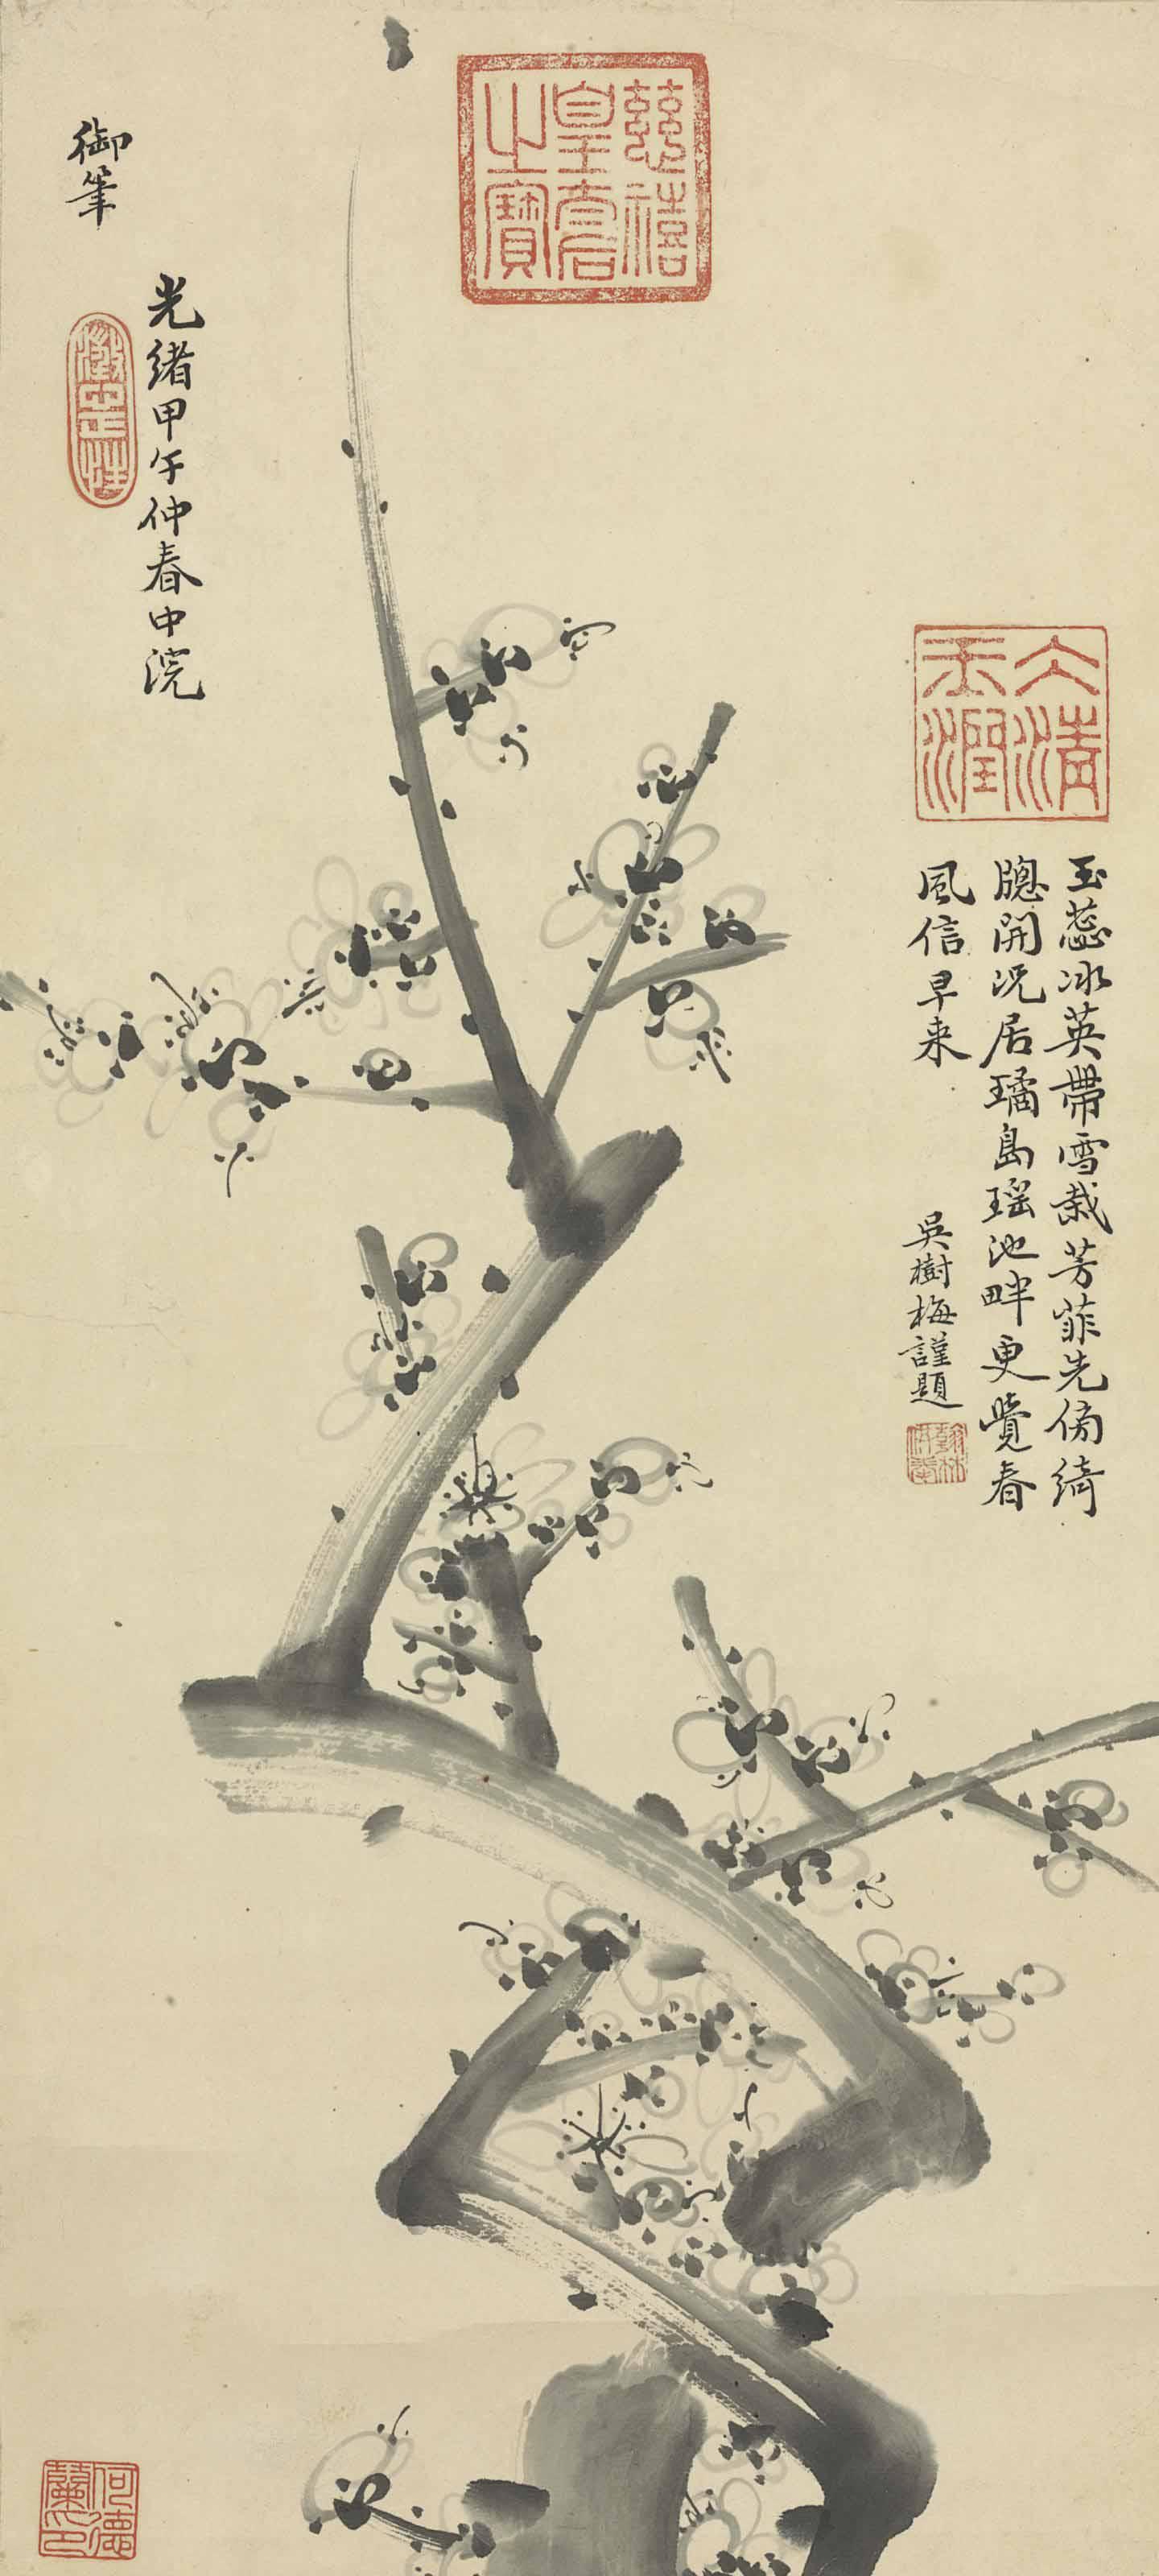 慈禧
皇太后
之寶
大清
玉蕊冰英帶雪栽芳菲先傍綺
牕開況居璚島瑶池畔更覺春
風信早来
吳樹梅謹題
翰林
光緒甲午仲春中浣
御筆
何德
蘭印